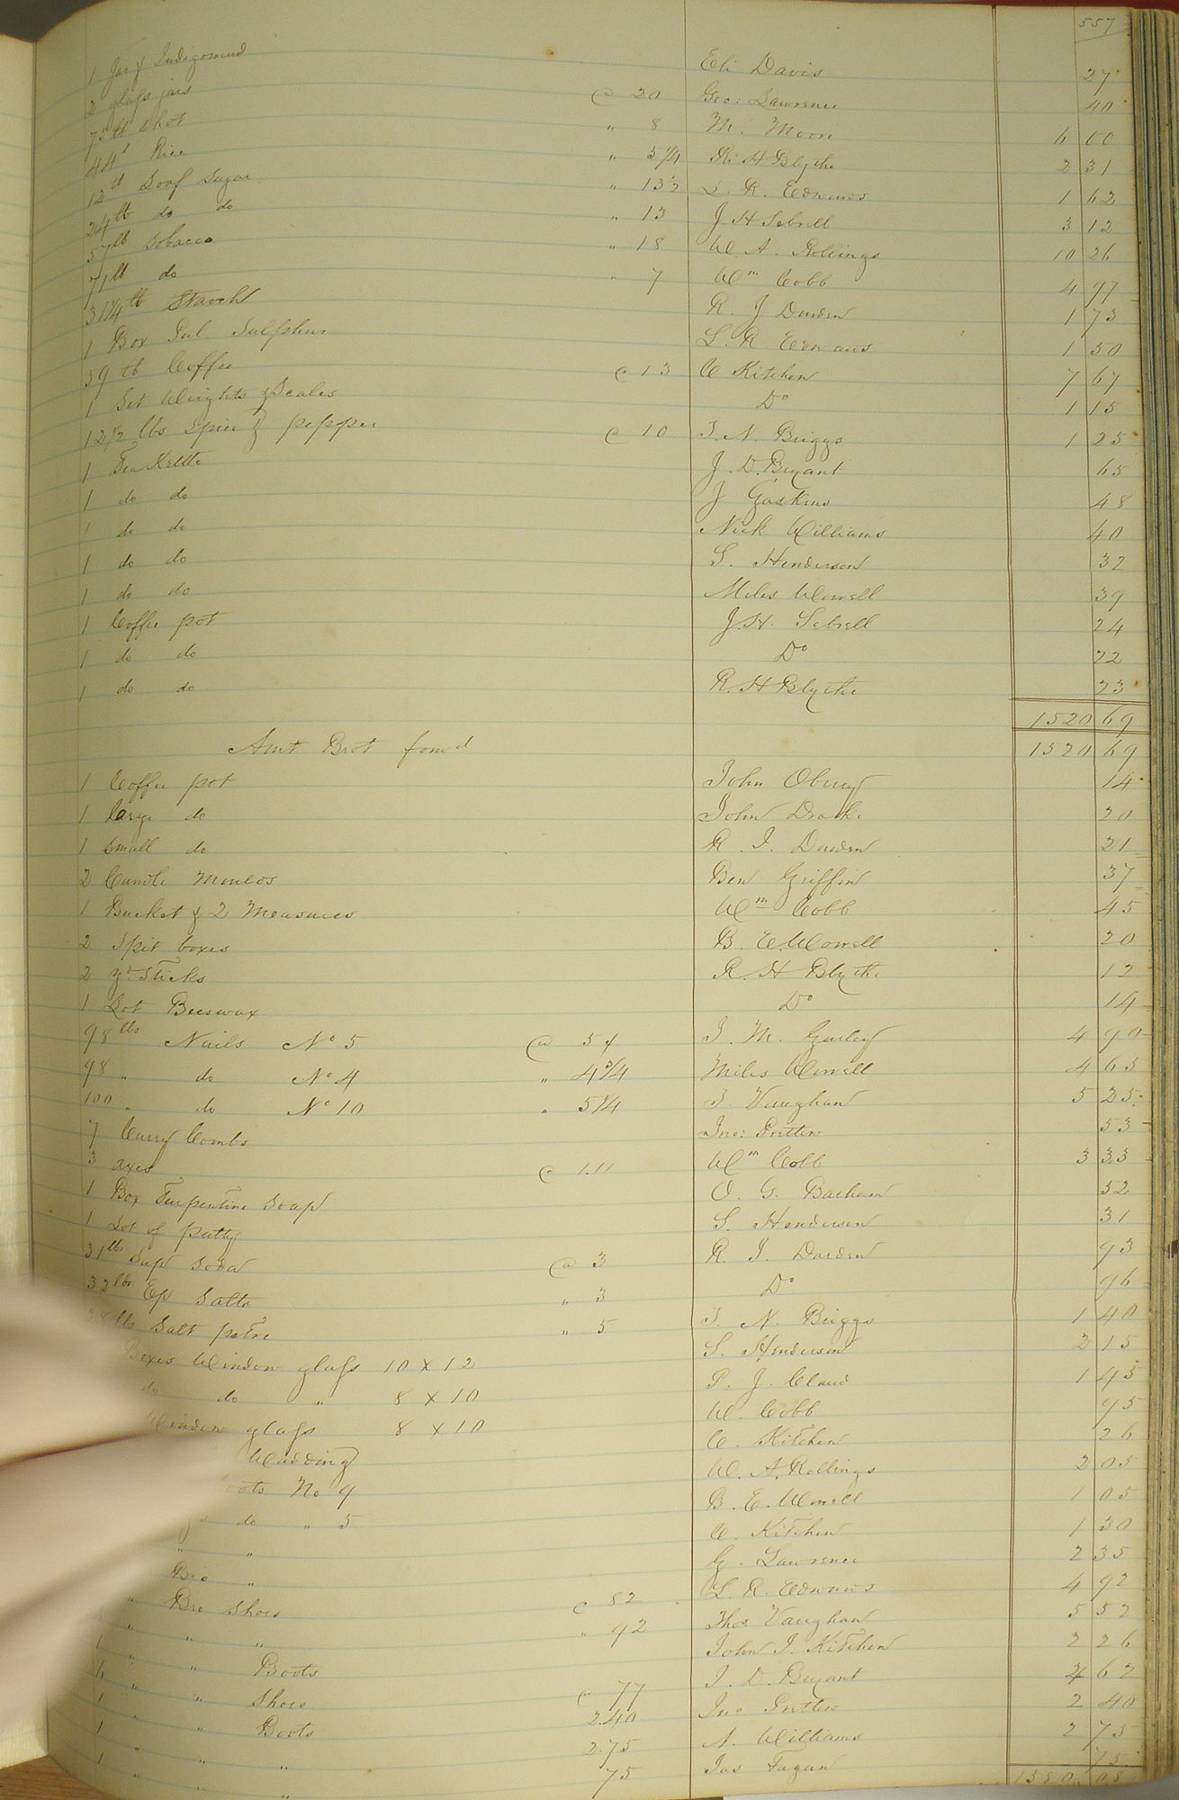 557
1 Jar of Eli Davis 27
2 glass jars @ 20 Geo: Lawrence 40
75 lb Shot " 8 M. Moore 6 00
44 " Rice " 5 1/4 R. H Blythe 2 31
12 lb Loaf Sugar " 13 1/2 L. R. Edwards 1 62
24 lb do do " 13 J H Sebrell 3 12
57 lb Tobacco " 18 W A. Rollings 10 26
71 lb do " 7 Wm Cobb 4 97
31 1/4 lb Starch R. J Darden 1 73
1 Box Sulphur L. R Edwards 1 50
59 lb Coffee @ 13 C Kitchen 7 67
1 Set Weights & Scales Do 1 15
12 1/2 lbs Spice & pepper @ 10 T. N. Briggs 1 25
1 Tea Kettle J. D. Bryant 65
1 do do J Gaskins 48
1 do do Nick Williams 40
1 do do S. Henderson 32
1 do do Miles Worrell 39
1 Coffee pot J. H. Sebrell 24
1 do do Do 22
1 do do R. H Blythe 23
1520 69
Amt Brot forwd 1520 69
1 Coffee pot John Oberry 14
1 large do John Drake 20
1 small do R. J. Darden 21
2 Candle Moulds Ben Griffin 37
1 Bucket & 2 Measures Wm Cobb 45
2 Spit boxes B. E. Worrell 20
2 yd Sticks R. H Blythe 12
1 Lot Beeswax Do 14
98 lbs Nails No 5 @ 5 ¢ J. M. Gurley 4 90
98 " do No 4 " 4 3/4 Miles Worrell 4 65
100 " do No 10 " 5 1/4 T. Vaughan 5 25
7 Curry Combs Jno: Pretlow 53
3 axes @ 1.11 Wm Cobb 3 33
1 Box Turpentine Soap O. G. 32
1 Lot of putty S. Henderson 31
31 lbs Sup Soda @ 3 R. J. Darden 93
32 lbs Ep Salts " 3 Do 96
28 lbs Salt petre " 5 T. N. Briggs 1 40
Boxes Window glass 10 x 12 S. Henderson 2 15
do do " 8 x 10 P. J. Claud 1 45
Window glass 8 x 10 W. Cobb 95
Wadding C. Kitchen 26
No 9 W. A. Rollings 2 05
do " 5 B. E. Worrell 1 05
" " C. Kitchen 1 30
Bro " G. Lawrence 2 35
" Bro Shoes @ 82 L. R. Edwards 4 92
" " " " 92 Thos Vaughan 5 52
" " Boots John J. Kitchen 2 26
6 " " Shoes @ 77 J. D. Bryant 4 62
1 " Boots 2.40 Jno Pretlow 2 40
1 " " 2.75 N. Williams 2 75
1 " " 75 Jas Fagan 75
1580 05